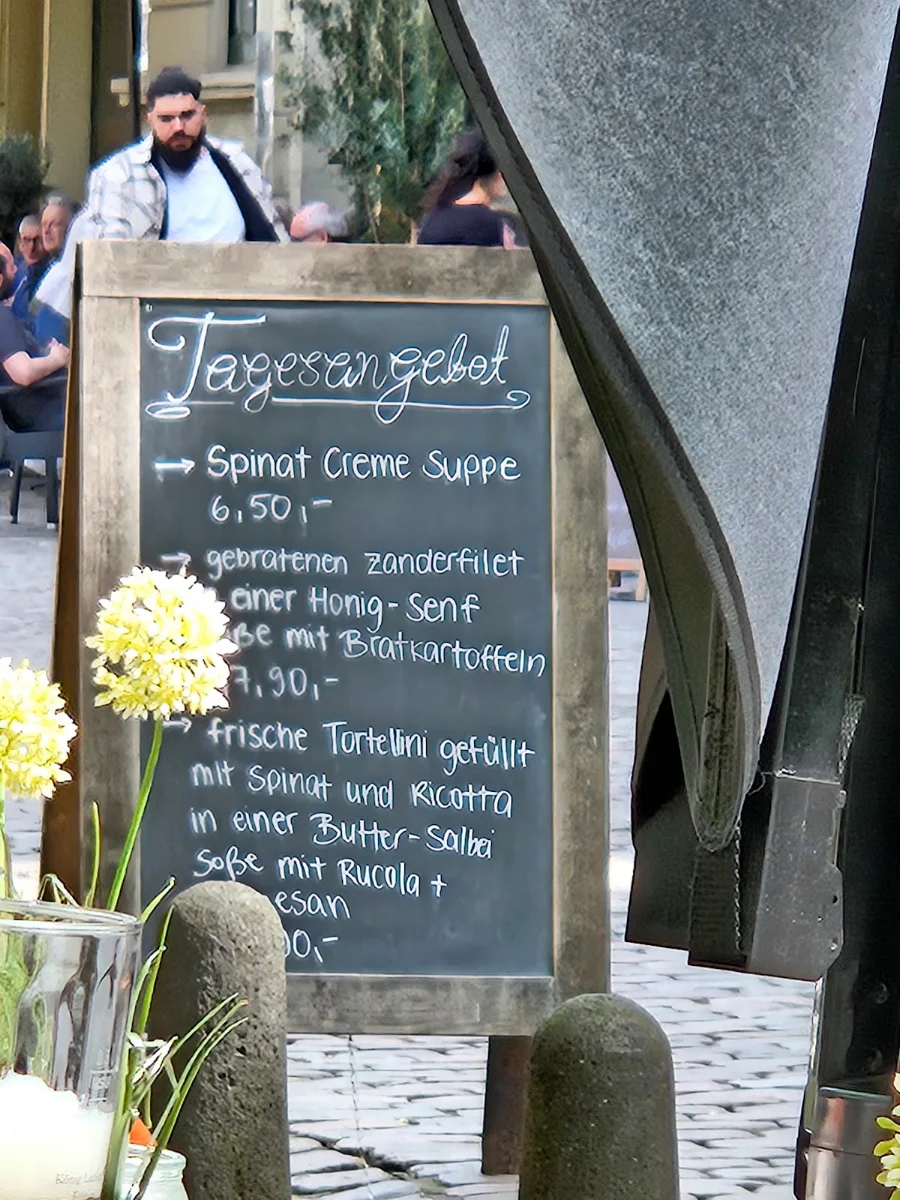 Tagesangebot
→ Spinat Creme Suppe
6,50,-
→ gebratenen Zanderfilet
einer Honig-Senf
ße mit Bratkartoffeln
7,90,-
→ frische Tortellini gefüllt
mit Spinat und Ricotta
in einer Butter-Salbei
Soße mit Rucola +
esan
90,-